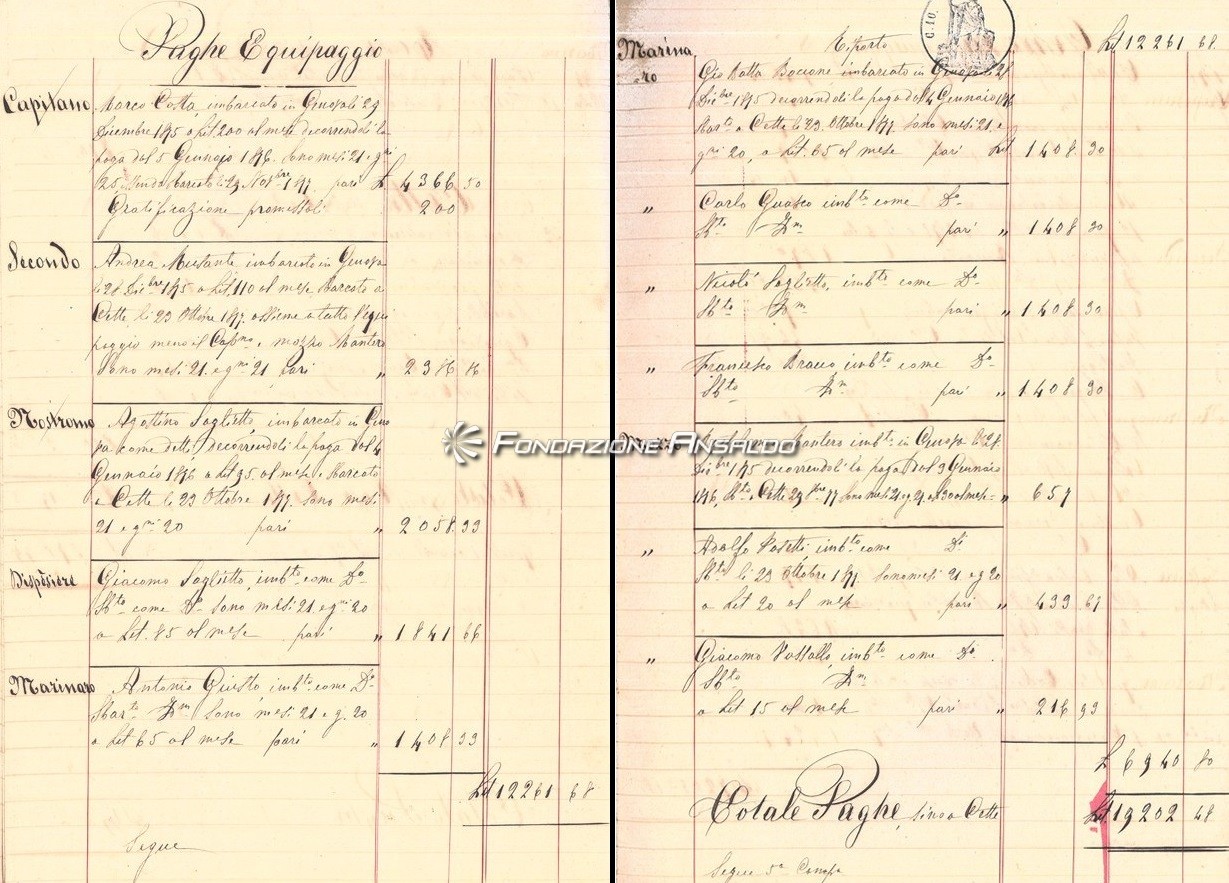 Paghe Equipaggio
Capitano Marco Costa, imbarcato in Genova li 29
Dicembre 1875 a Lit 200 al mese decorrendoli la
paga dal 5 Gennajo 1876. sono mesi 21 e gni
25 sendo sbarcato li 29 Novbre 1877. pari L 4366 50
Gratificazione promessali 200
Secondo Andrea imbarcato in Genova
li 28 Dicbre 1875 a Lit. 110 al mese sbarcato a
Cette li 23 Ottobre 1877. assieme a tutto l'equi
paggio meno il Capno. e mozzo Mantero
sono mesi 21. e gni 21 pari " 2386 86
Nostromo Agostino Soglietto, imbarcato in Geno
va come detti, decorrendoli la paga dal 4
Gennaio 1876 a Lit 95. al mese e sbarcato
a Cette li 23 Ottobre 1877. sono mesi
21 e gni 20 pari " 2058. 33
Dispensiere Giacomo Soglietto, imbto. come Do
Sbto come Do sono mesi 21 e gni 20
a Lit. 85 al mese pari " 1841 66
Marinaro Antonio Giusto imbto come Do
Sbarto Dm sono mesi 21 e g. 20
a Lit 65 al mese pari " 1408 33
Lit 12261 68
Segue
Riporto Lit 12261 68
Marinaro Gio Batta Bocione imbarcato in Genova li 28
Dicbre 1875 decorrendoli la paga dal 4 Gennaio 1876
Sbarto a Cette li 23 Ottobre 1877. sono mesi 21. e
gni 20, a Lit. 65 al mese pari Lit 1408. 30
" Carlo Guasco imbto come Do
Sbto Dm pari " 1408 30
" Nicolò Soglietto, imbto come Do
Sbto Dm pari " 1408 30
" Francesco Bracco imbto come Do
Sbto Dm pari " 1408 30
Fondazione Ansaldo
Mozzo Mantero imbto in Genova li 28
Dicbre 1875 decorrendoli la paga dal 3 Gennaio
1876, Sbto a Cette 77 sono mesi 21 al mese " 657
" Adolfo imbto come Do
Sbto li 23 Ottobre 1877 sono mesi 21. e g 20
a Lit 20 al mese pari " 433 67
" Giacomo Vassallo, imbto come Do
Sbto Dm
a Lit 15 al mese pari " 216 93
L 6940 80
Totale Paghe sino a Cette Lit. 19202 48
Segue 5a